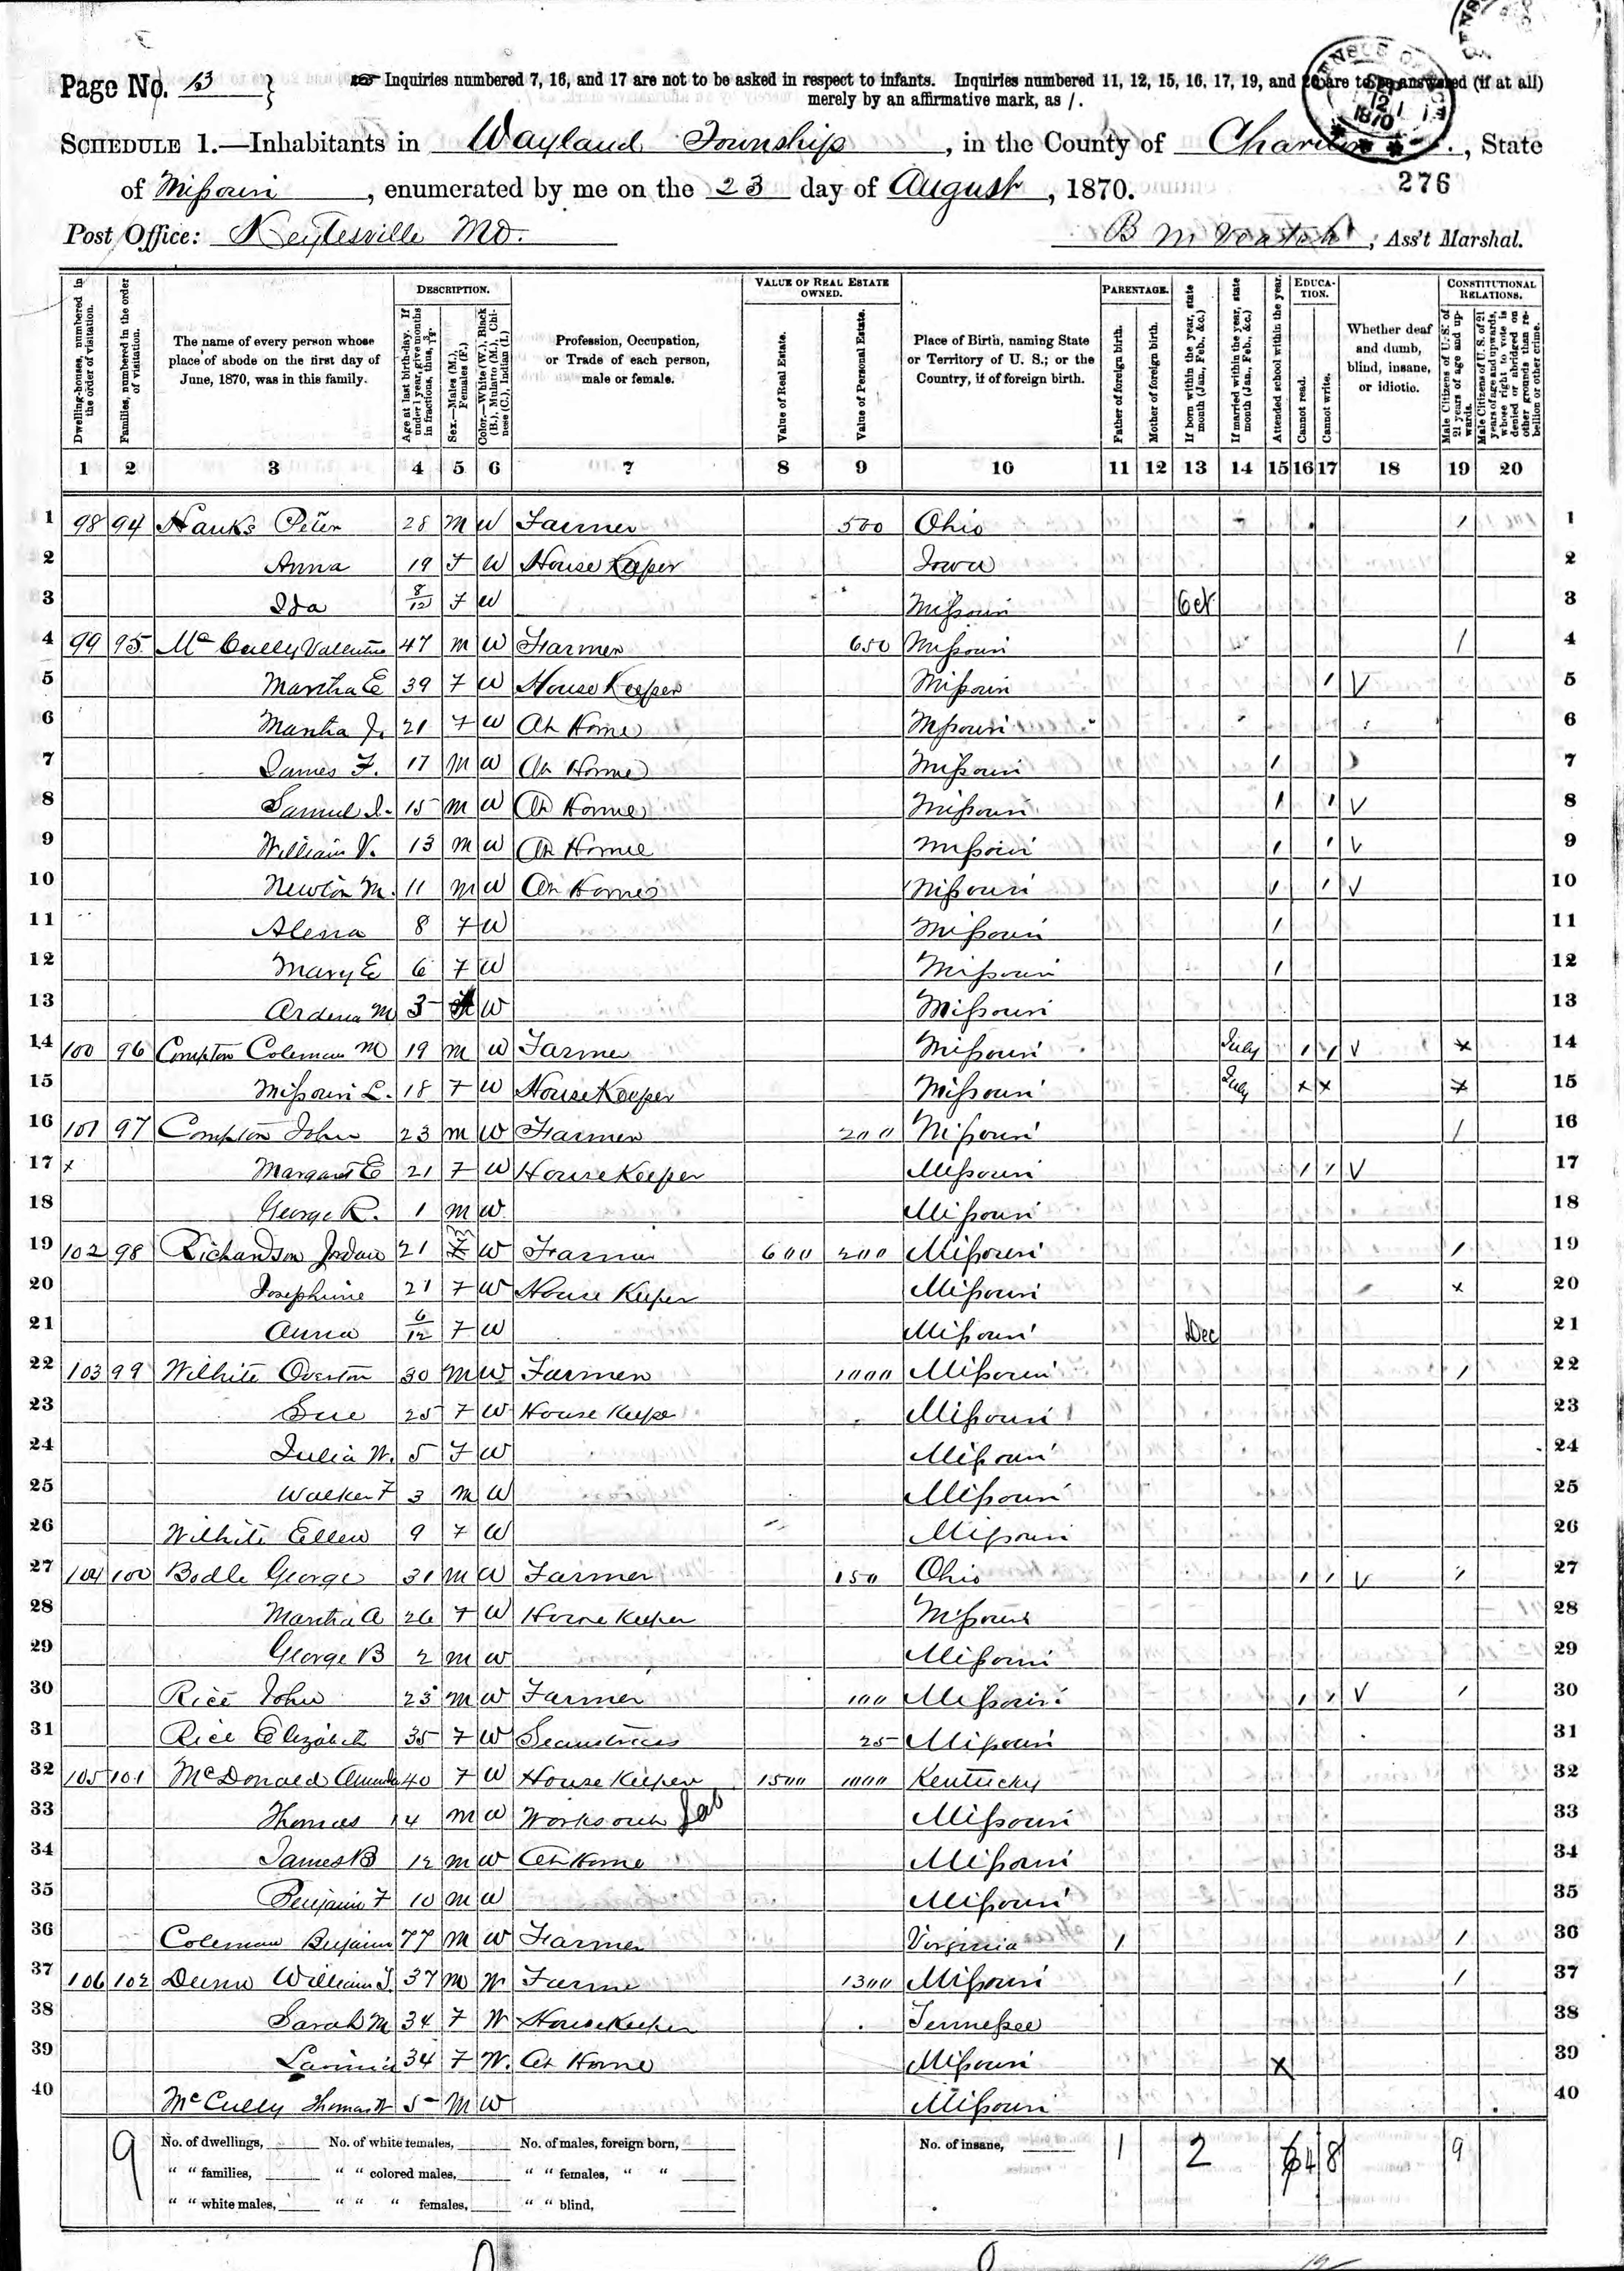 Page No. 13 } Inquiries numbered 7, 16, and 17 are not to be asked in respect to infants. Inquiries numbered 11, 12, 15, 16, 17, 19, and 20 are to be answered (if at all)
merely by an affirmative mark, as /.
SCHEDULE 1.—Inhabitants in Wayland Township, in the County of Chariton, State
of Missouri, enumerated by me on the 23 day of August, 1870.
276
Post Office: Keytesville Mo. B M Veatch, Ass't Marshal.
Dwelling-houses, numbered in the order of visitation.
Families, numbered in the order of visitation.
The name of every person whose place of abode on the first day of June, 1870, was in this family.
DESCRIPTION.
Age at last birth-day. If under 1 year, give months in fractions, thus, 3/12.
Sex.—Males (M.), Females (F.)
Color.—White (W.), Black (B.), Mulatto (M.), Chinese (C.), Indian (I.)
Profession, Occupation, or Trade of each person, male or female.
VALUE OF REAL ESTATE OWNED.
Value of Real Estate.
Value of Personal Estate.
Place of Birth, naming State or Territory of U. S.; or the Country, if of foreign birth.
PARENTAGE.
Father of foreign birth.
Mother of foreign birth.
If born within the year, state month (Jan., Feb., &c.)
If married within the year, state month (Jan., Feb., &c.)
Attended school within the year.
EDUCATION.
Cannot read.
Cannot write.
Whether deaf and dumb, blind, insane, or idiotic.
CONSTITUTIONAL RELATIONS.
Male Citizens of U. S. of 21 years of age and upwards.
Male Citizens of U. S. of 21 years of age and upwards, whose right to vote is denied or abridged on other grounds than rebellion or other crime.
1 2 3 4 5 6 7 8 9 10 11 12 13 14 15 16 17 18 19 20
1 98 94 Hanks Peter 28 M W Farmer 500 Ohio / 1
2 Anna 19 F W House Keeper Iowa 2
3 Ida 8/12 F W Missouri Oct 3
4 99 95 Mc Cully Valentine 47 M W Farmer 650 Missouri / 4
5 Martha E 39 F W House Keeper Missouri / V 5
6 Martha J. 21 F W At Home Missouri 6
7 James F. 17 M W At Home Missouri / 7
8 Samuel 15 M W At Home Missouri / / V 8
9 William V. 13 M W At Home Missouri / / V 9
10 Newton M. 11 M W At Home Missouri / / V 10
11 8 F W Missouri / 11
12 Mary E 6 F W Missouri / 12
13 Ardena M 3 W Missouri 13
14 100 96 Compton Coleman M 19 M W Farmer Missouri July / / V x 14
15 Missouri L. 18 F W House Keeper Missouri July x x x 15
16 101 97 Compton John 23 M W Farmer 200 Missouri / 16
17 x Margaret E 21 F W House Keeper Missouri / / V 17
18 George R. 1 M W Missouri 18
19 102 98 Richardson Jordan 21 M W Farmer 600 200 Missouri / 19
20 Josephine 21 F W House Keeper Missouri x 20
21 Anna 6/12 F W Missouri Dec 21
22 103 99 Wilhite Overton 30 M W Farmer 1000 Missouri / 22
23 Sue 25 F W House Keeper Missouri 23
24 Julia W. 5 F W Missouri 24
25 Walker F 3 M W Missouri 25
26 Wilhite Ellen 9 F W Missouri 26
27 104 100 Bodle George 31 M W Farmer 150 Ohio / / V / 27
28 Martha A 26 F W House Keeper Missouri 28
29 George B 2 M W Missouri 29
30 Rice John 23 M W Farmer 100 Missouri / / V / 30
31 Rice Elizabeth 35 F W Seamstress 25 Missouri 31
32 105 101 McDonald Amanda 40 F W House Keeper 1500 1000 Kentucky 32
33 Thomas 14 M W Works out Lab Missouri 33
34 James B 12 M W At Home Missouri 34
35 Benjamin F 10 M W Missouri 35
36 Coleman Benjamin 77 M W Farmer Virginia / / 36
37 106 102 Dunn William J. 37 M W Farmer 1300 Missouri / 37
38 Sarah M 34 F W House Keeper Tennessee 38
39 34 F W. At Home Missouri X 39
40 McCully Thomas W 5 M W Missouri 40
9 No. of dwellings, No. of white females, No. of males, foreign born, No. of insane, 1 2 4 8 9
" " families, " " colored males, " " females, " "
" " white males, " " " females, " " blind,